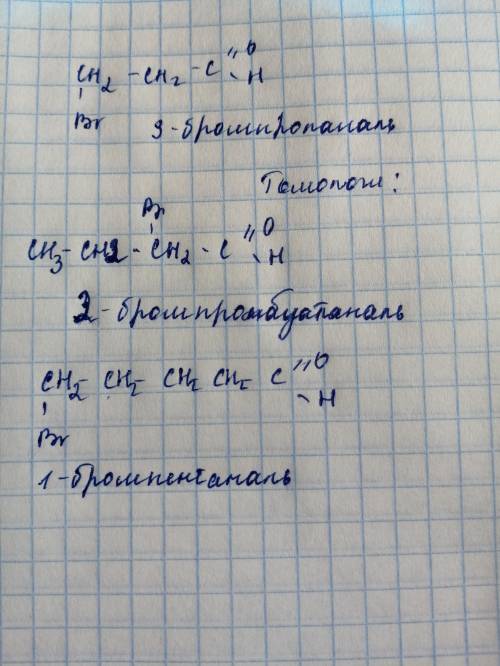 CH2 - CH2 - C =O - H
Br
3-бромпропаналь
Гомологи:
Br
CH3 - CH2 - CH2 - C =O - H
2-бромбутаналь
CH2 - CH2 CH2 CH2 C =O - H
Br
1-бромпентаналь